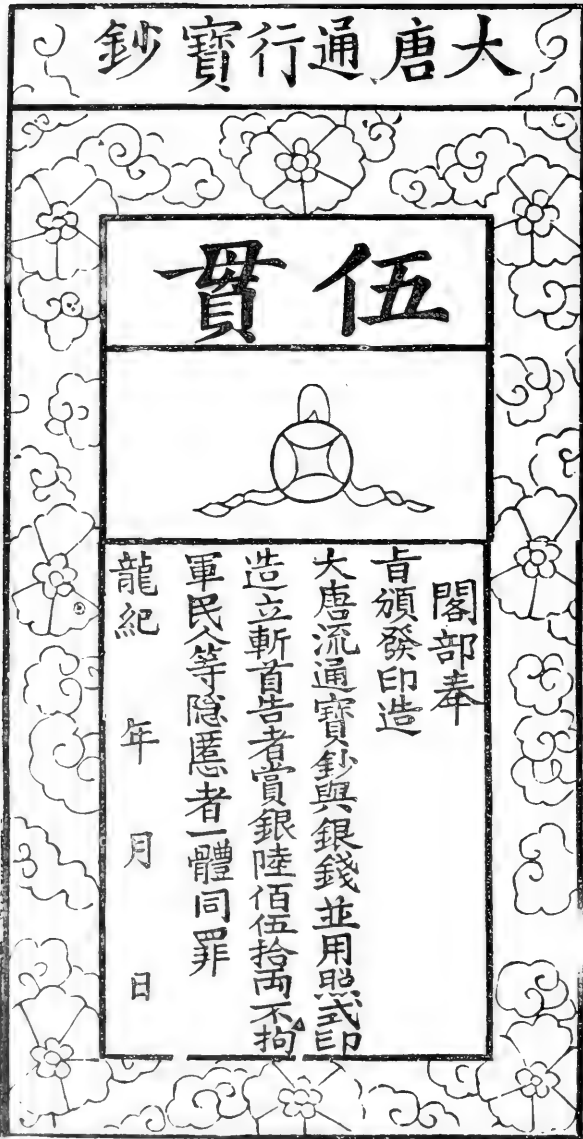 大唐通行寶鈔
伍貫
閣部奉
旨頒發印造
大唐流通寶鈔與銀錢並用照式印
造立斬首告者賞銀陸佰伍拾兩不拘
軍民人等隱慝者一體同罪
龍紀 年 月 日